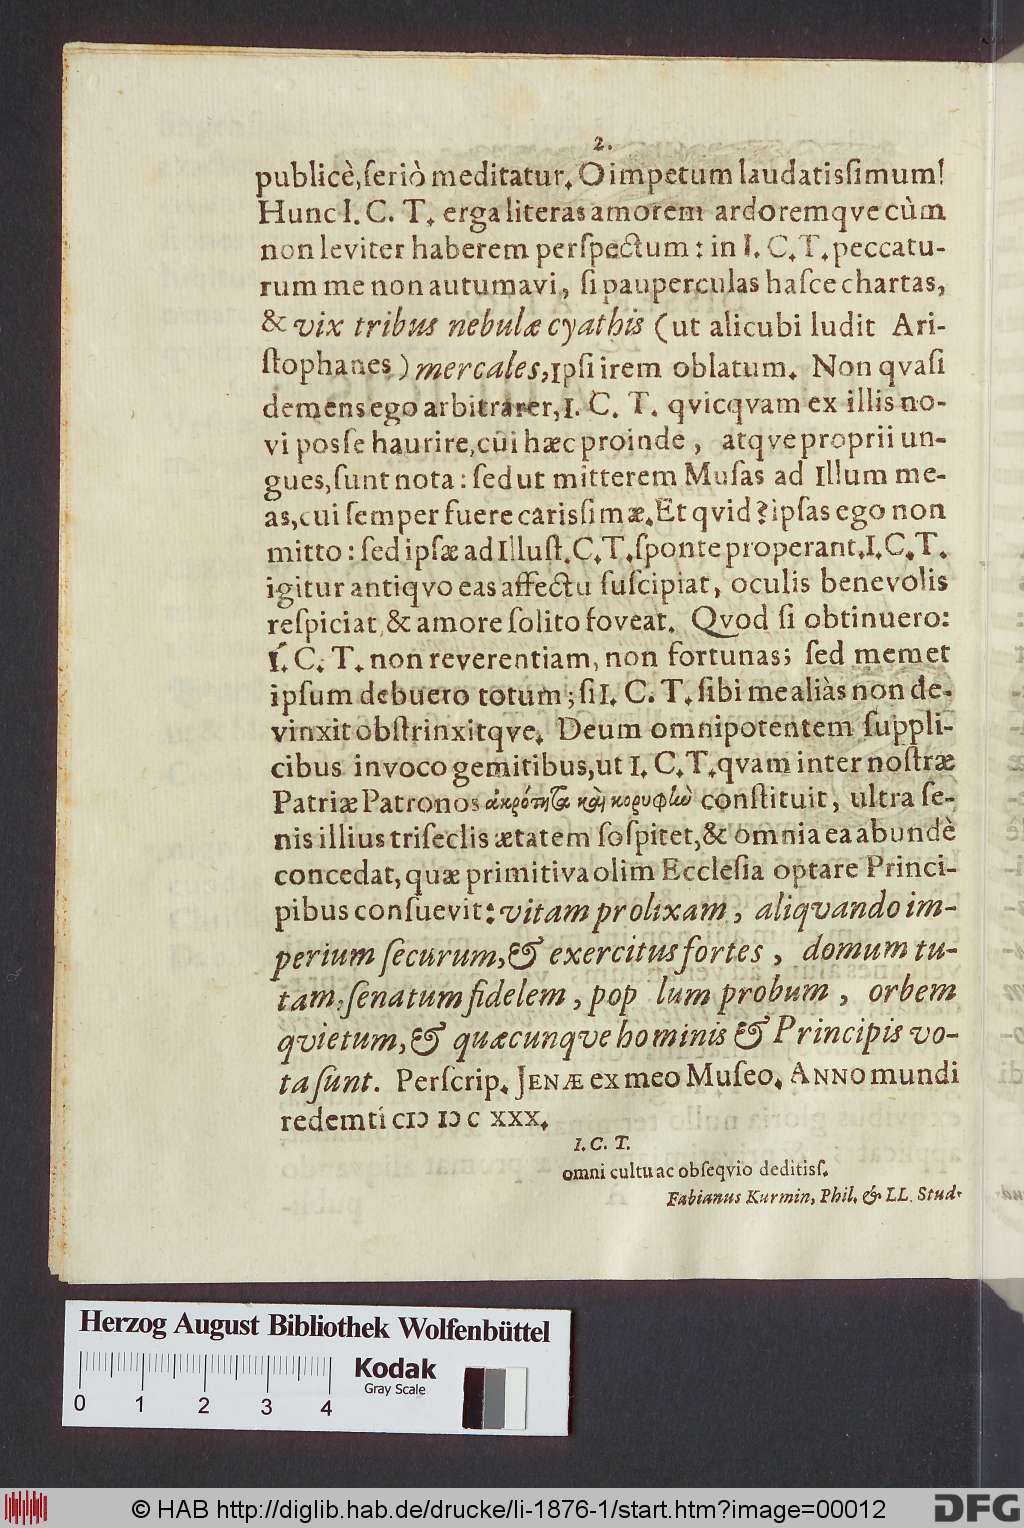 2.
publicè, ſeriò meditatur. O impetum laudatisſimum!
Hunc I. C. T. erga literas amorem ardoremqve cùm
non leviter haberem perſpectum: in I. C. T. peccatu-
rum me non autumavi, ſi pauperculas haſce chartas,
& vix tribus nebulæ cyathis (ut alicubi ludit Ari-
ſtophanes) mercales, Ipſi irem oblatum. Non qvaſi
demens ego arbitrarer, I. C. T. qvicqvam ex illis no-
vi posſe haurire, cui hæc proinde, atqve proprii un-
gues, ſunt nota: ſed ut mitterem Muſas ad Illum me-
as, cui ſemper fuere carisſimæ. Et qvid? ipſas ego non
mitto: ſed ipſæ ad Illuſt. C. T. ſponte properant. I. C. T.
igitur antiqvo eas affectu ſuſcipiat, oculis benevolis
reſpiciat, & amore ſolito foveat. Qvod ſi obtinuero:
I. C. T. non reverentiam, non fortunas; ſed memet
ipſum debuero totum; ſi I. C. T. ſibi me aliàs non de-
vinxit obſtrinxitqve. Deum omnipotentem ſuppli-
cibus invoco gemitibus, ut I. C. T. qvam inter noſtræ
Patriæ Patronos ἀκρότητα καὶ κορυφὴν conſtituit, ultra ſe-
nis illius triſeclis ætatem ſoſpitet, & omnia ea abundè
concedat, quæ primitiva olim Ecclesia optare Princi-
pibus conſuevit: vitam prolixam, aliqvando im-
perium ſecurum, & exercitus fortes, domum tu-
tam, ſenatum fidelem, pop lum probum, orbem
qvietum, & quæcunqve hominis & Principis vo-
ta ſunt. Perſcrip. JENÆ ex meo Muſeo. ANNO mundi
redemti CIↃ IↃ C XXX.
I. C. T.
omni cultu ac obſeqvio deditisſ.
Fabianus Kurmin, Phil. & LL. Stud.
Herzog August Bibliothek Wolfenbüttel
Kodak
Gray Scale
0 1 2 3 4
© HAB http://diglib.hab.de/drucke/li-1876-1/start.htm?image=00012
DFG